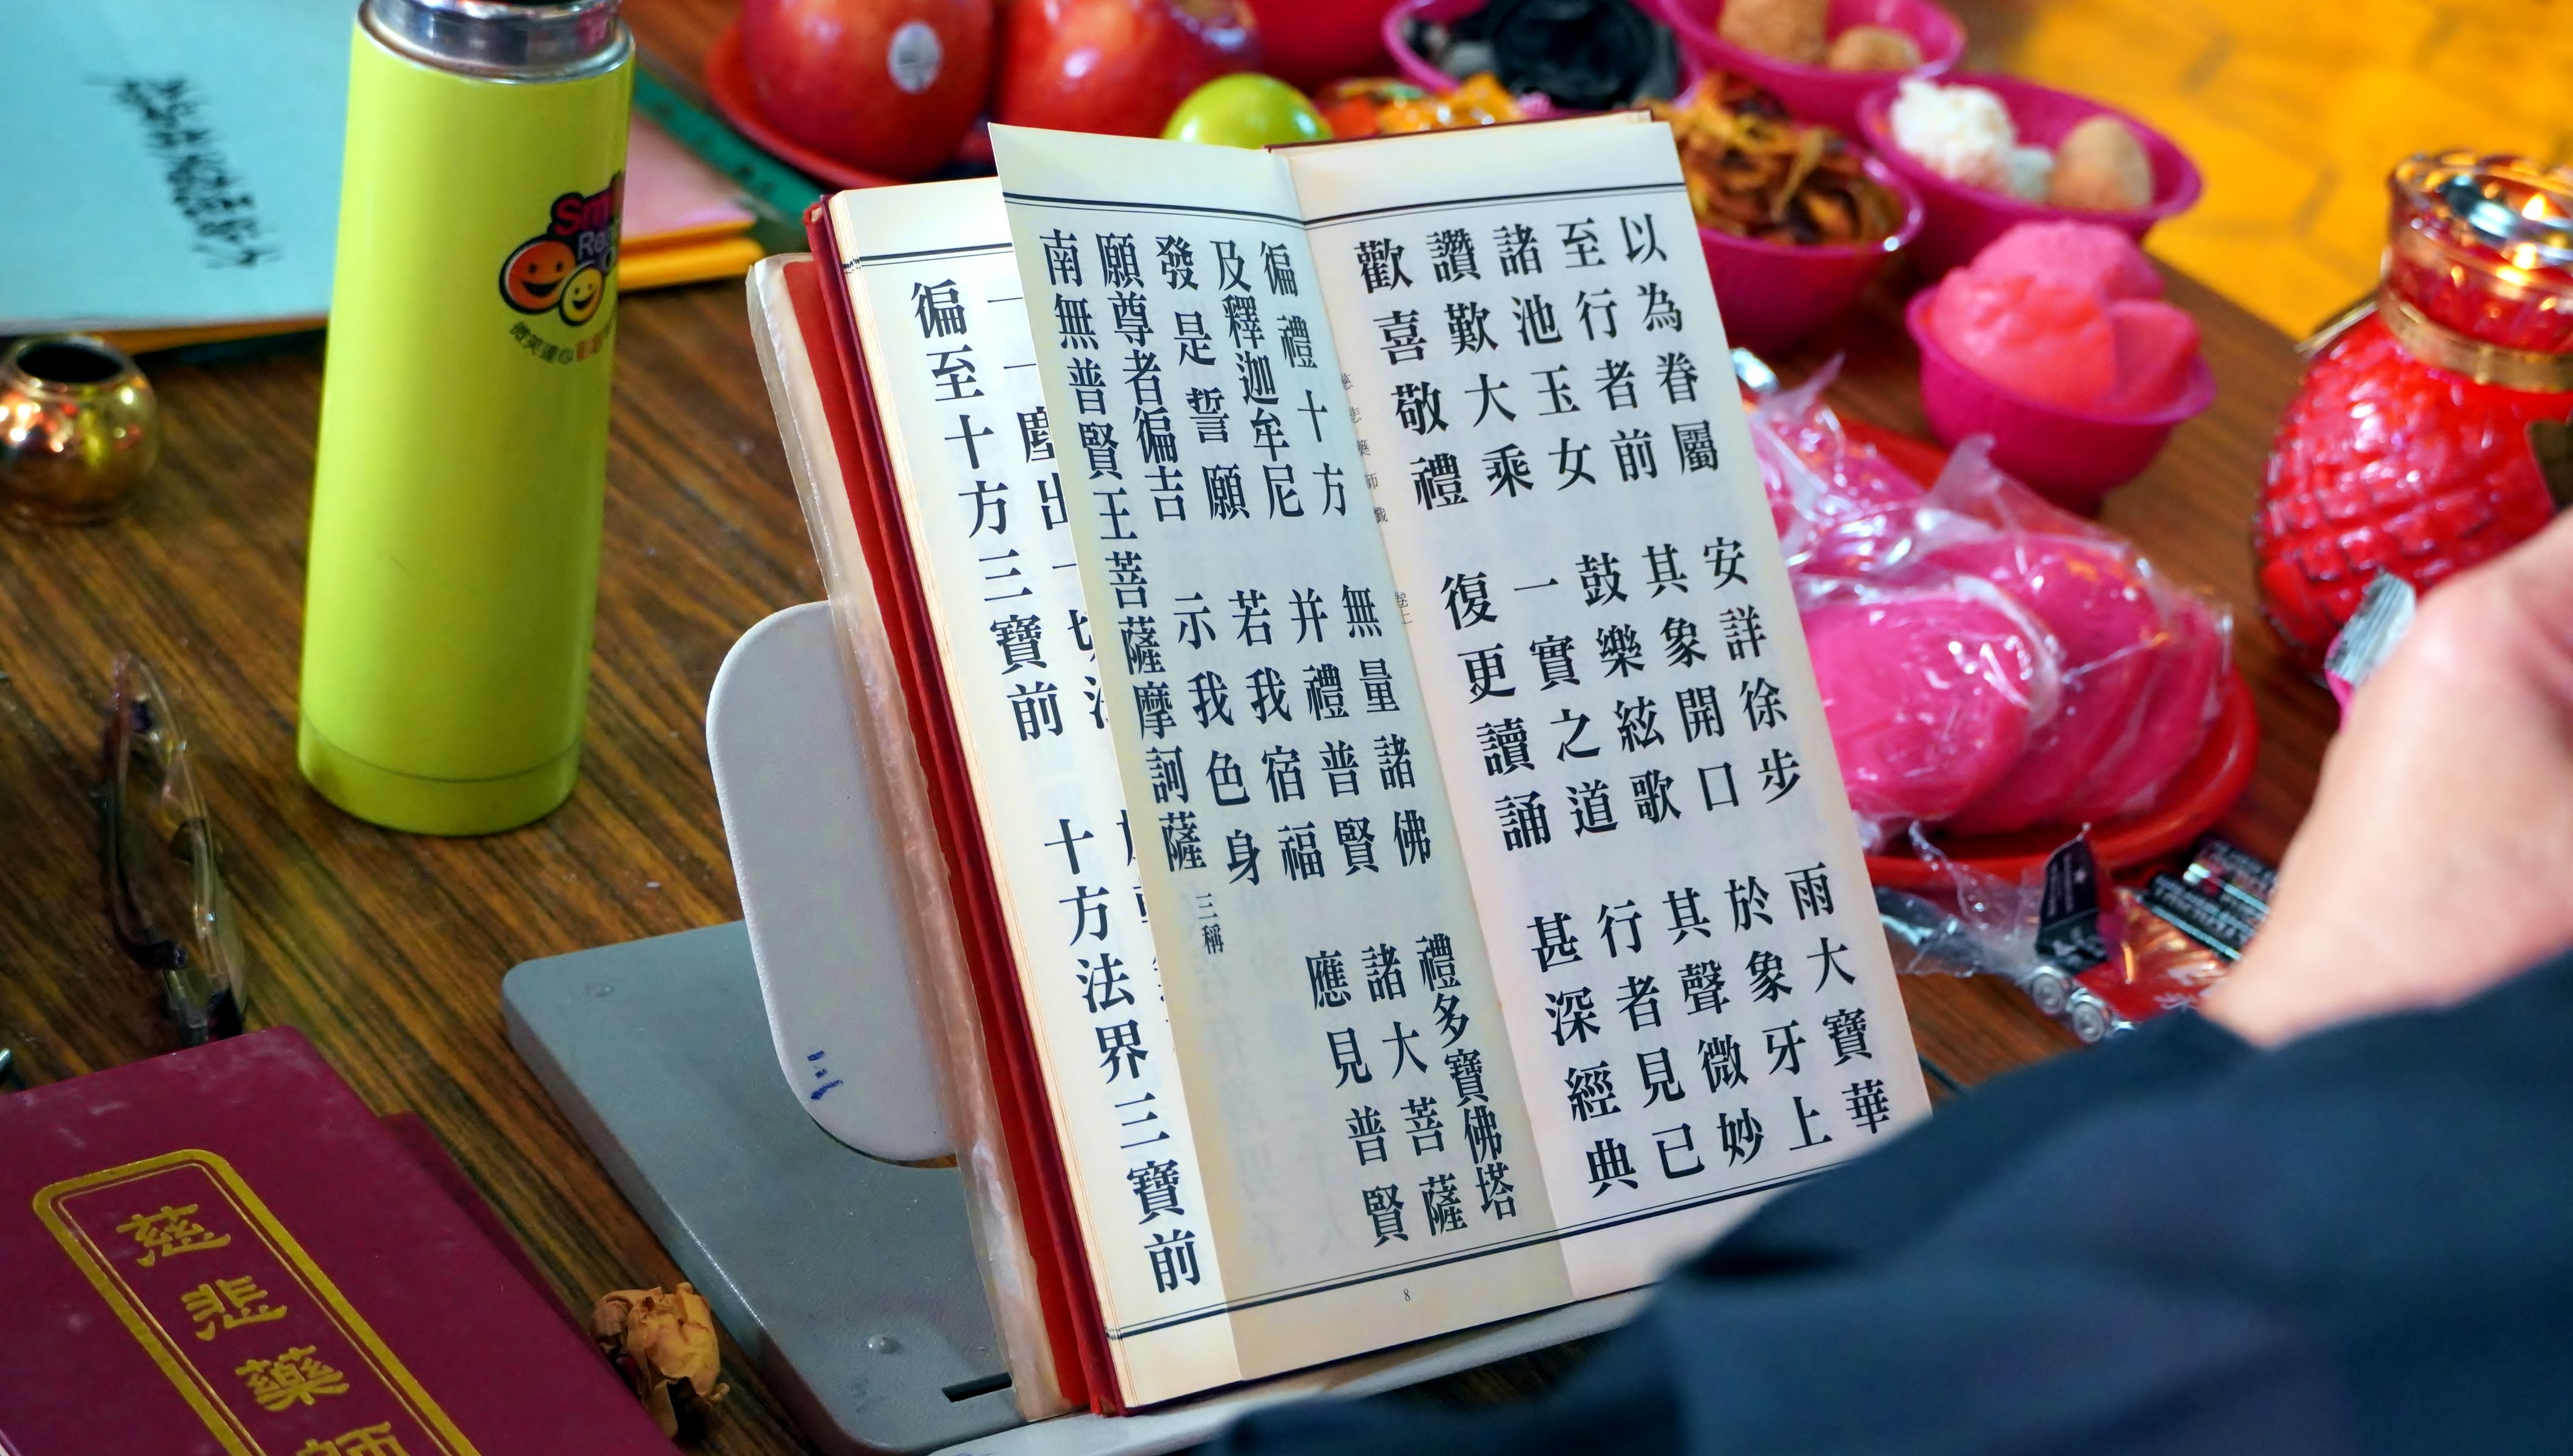 以為眷屬 安詳徐步 雨大寶華
至行者前 其象開口 於象牙上
諸池玉女 鼓樂絃歌 其聲微妙
讚歎大乘 一實之道 行者見已
歡喜敬禮 復更讀誦 甚深經典
慈悲藥師懺 卷上
8
徧禮十方 無量諸佛 禮多寶佛塔
及釋迦牟尼 并禮普賢 諸大菩薩
發是誓願 若我宿福 應見普賢
願尊者徧吉 示我色身
南無普賢王菩薩摩訶薩 三稱
一一塵出一切
徧至十方三寶前 十方法界三寶前
慈悲藥師